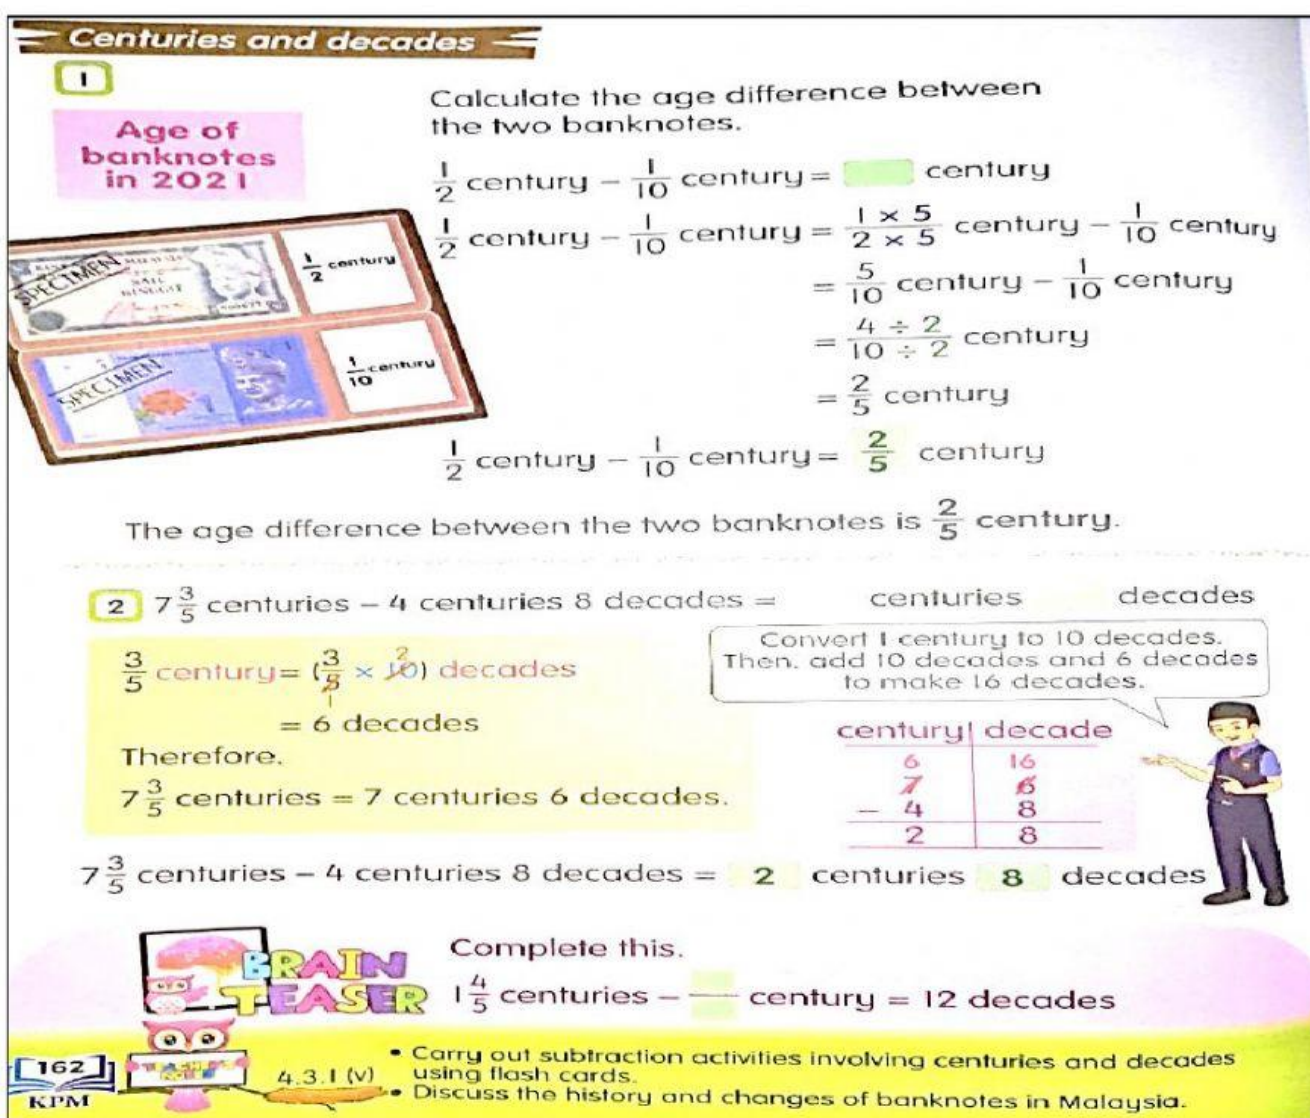 Centuries and decades
1
Age of
banknotes
in 2021
Calculate the age difference between
the two banknotes.
1/2 century − 1/10 century = century
1/2 century − 1/10 century = 1 × 5/2 × 5 century − 1/10 century
= 5/10 century − 1/10 century
= 4 ÷ 2/10 ÷ 2 century
= 2/5 century
1/2 century − 1/10 century = 2/5 century
SPECIMEN
1/2 century
SPECIMEN
1/10 century
The age difference between the two banknotes is 2/5 century.
2 7 3/5 centuries − 4 centuries 8 decades = centuries decades
3/5 century = (3/5 × 10) decades
2
1
= 6 decades
Therefore,
7 3/5 centuries = 7 centuries 6 decades.
Convert 1 century to 10 decades.
Then, add 10 decades and 6 decades
to make 16 decades.
century decade
6 16
7 6
− 4 8
2 8
7 3/5 centuries − 4 centuries 8 decades = 2 centuries 8 decades
BRAIN
TEASER
Complete this.
1 4/5 centuries − century = 12 decades
162
KPM
TEACHER'S
NOTES
4.3.1 (v)
• Carry out subtraction activities involving centuries and decades
using flash cards.
• Discuss the history and changes of banknotes in Malaysia.